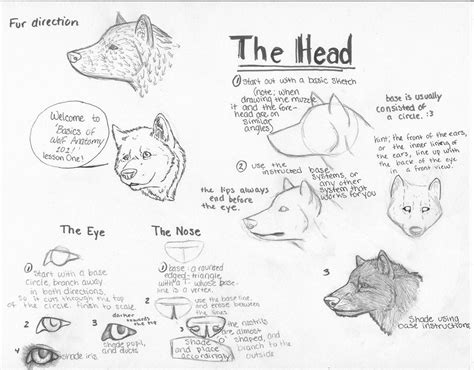 Fur direction
The Head
① Start out with a basic sketch
(note; when
drawing the muzzle
it and the fore-
head are on
similar
angles)
base is usually
consisted of
a circle. :3
hint; the front of the ears,
or the inner lining of
the ears, line up with
the back of the eye
in a front view.
② use the
instructed base
systems, or
any other
system that
works for you
the lips always
end before
the eye.
Welcome to
Basics of
Wolf Anatomy
101!
lesson One!
The Eye
① start with a base
circle, branch away
in both directions.
So it cuts through the top
of the circle. finish to scale.
2
3
darker
towards the
top
shade pupil,
and ducts
4
shade iris
The Nose
① base: a rounded
edged-triangle
with a T whose base
line is a vertex.
②
use the base line
and erase between
the lines
③
the nostrils
are almost
shaped, and
branch to the
outside
Shade
and place
accordingly
3
Shade using
base instructions